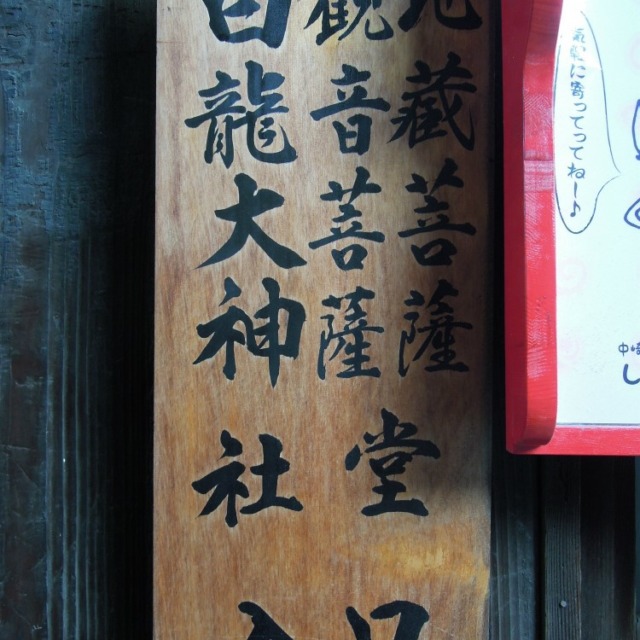 地蔵菩薩
観音菩薩
堂
白龍大神
社
気軽に寄ってってねー♪
し